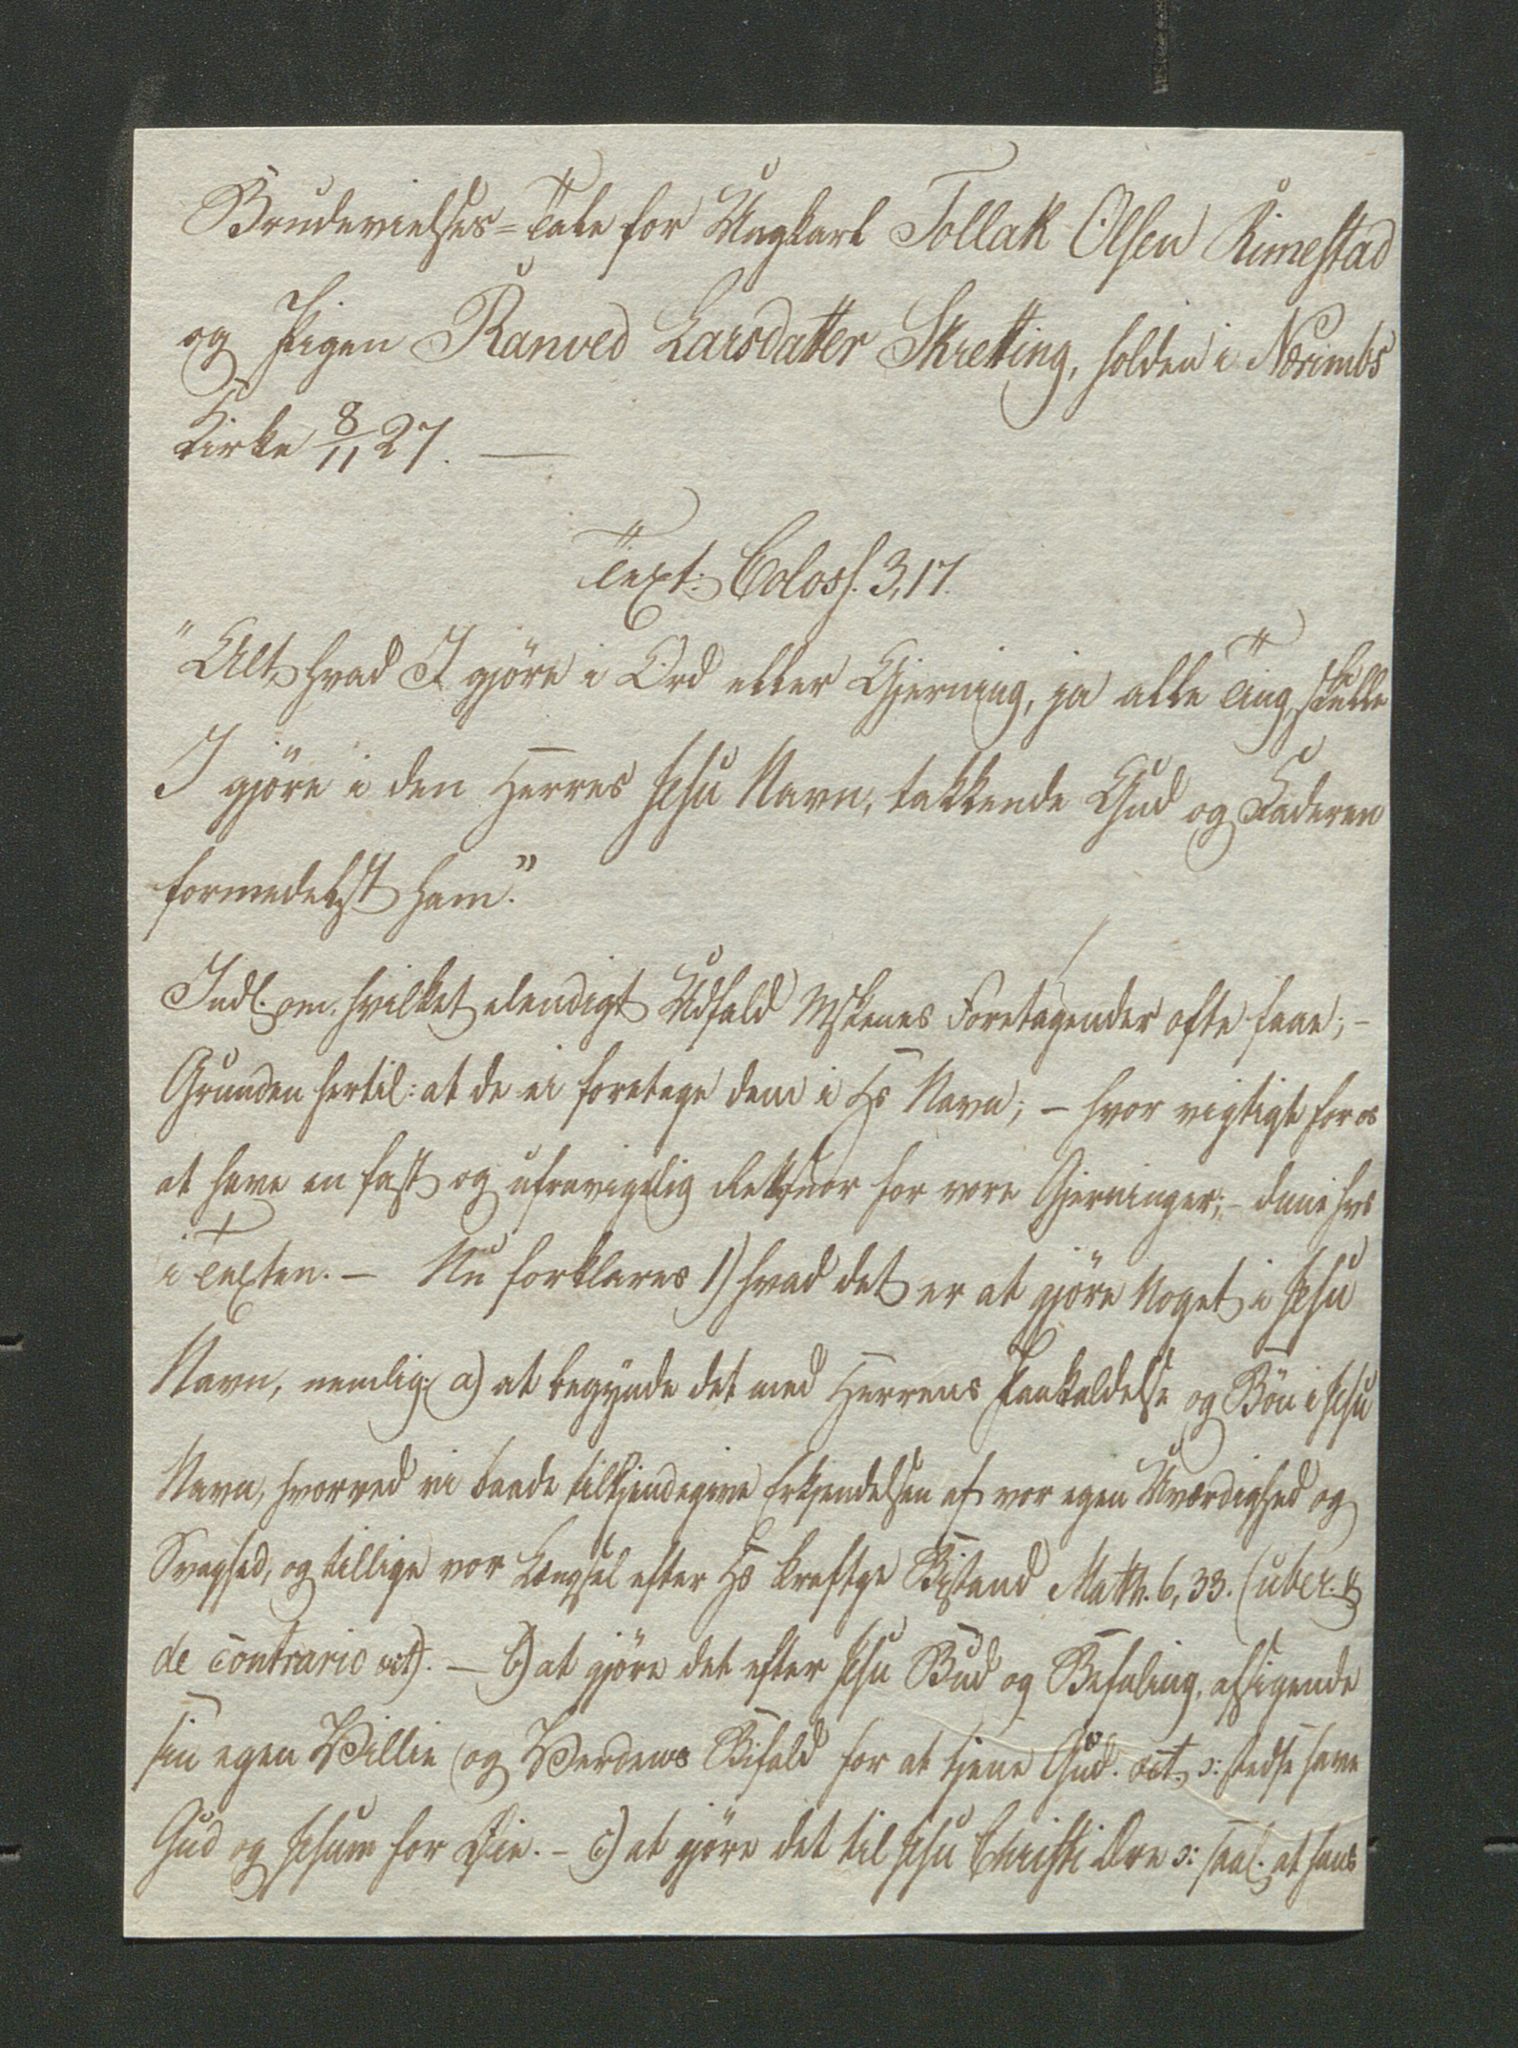 Brudevielses=Tale for Ungkarl Tollak Olsen Rimestad
og Pigen Ranved Larsdatter Skretting, holden i Nærimbs
Kirke 8/11 27. —
Text: Coloss. 3,17.
"Alt, hvad I gjöre i Ord eller Gjerning, ja alle Ting, skulle
I gjöre i den Herres Jesu Navn, takkende Gud og Faderen
formedelst ham."
Indl. om, hvilket elendigt Udfald Mskenes Foretagender ofte faae; –
Grunden hertil: at de ei foretage dem i Hs Navn; – hvor vigtigt for os
at have en fast og ufravigelig Rettesnor for vore Gjerninger; – denne hvs
i Texten. – Nu forklares 1) hvad det er at gjöre Noget i Jesu
Navn, nemlig: a) at begynde det med Herrens Paakaldelse og Bön i Jesu
Navn, hvorved vi baade tilkjendegive Erkjendelsen af vor egen Uværdighed og
Svaghed, og tillige vor Længsel efter Hs kraftge Bistand Matth. 6, 33. (uber. &
de contrario oct). – b) at gjöre det efter Jesu Bud og Befaling, afsigende
sin egen Villie og Verdens Bifald for at tjene Gud. oct. ɔ: stedse have
Gud og Jesum for Öie. – c) at gjöre det til Jesu Christi Ære ɔ: saal. at hans